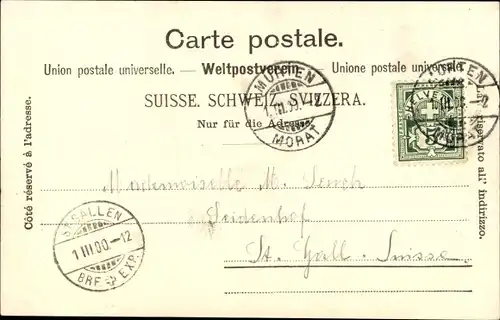 Carte postale.
Union postale universelle. — Weltpostverein. — Unione postale universale.
SUISSE. SCHWEIZ. SVIZZERA.
Nur für die Adresse.
Côté réservé à l'adresse.
Lato riservato all' indirizzo.
MURTEN
MORAT
MURTEN
Mademoiselle M.
Seidenhof
St. Gall. Suisse.
ST. GALLEN
1 III. 00. – 12
BRF. EXP.